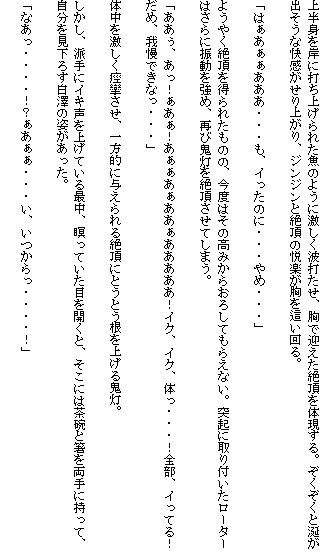 上半身を岸に打ち上げられた魚のように激しく波打たせ、胸で迎えた絶頂を体現する。ぞくぞくと涎が
出そうな快感がせり上がり、ジンジンと絶頂の悦楽が胸を這い回る。
「はぁあぁぁあああ・・・も、イったのに・・・やめ・・・」
ようやく絶頂を得られたものの、今度はその高みからおろしてもらえない。突起に取り付いたローター
はさらに振動を強め、再び鬼灯を絶頂させてしまう。
「ああぅ、あっ！ぁあぁ！あぁぁあぁああぁあああああ！イク、イク、体っ・・・！全部、イってる！
だめ、我慢できなっ・・・」
体中を激しく痙攣させ、一方的に与えられる絶頂にとうとう根を上げる鬼灯。
しかし、派手にイキ声を上げている最中、瞑っていた目を開くと、そこには茶碗と箸を両手に持って、
自分を見下ろす白澤の姿があった。
「なあっ・・・・！？ぁあぁぁ・・・い、いつからっ・・・・！」